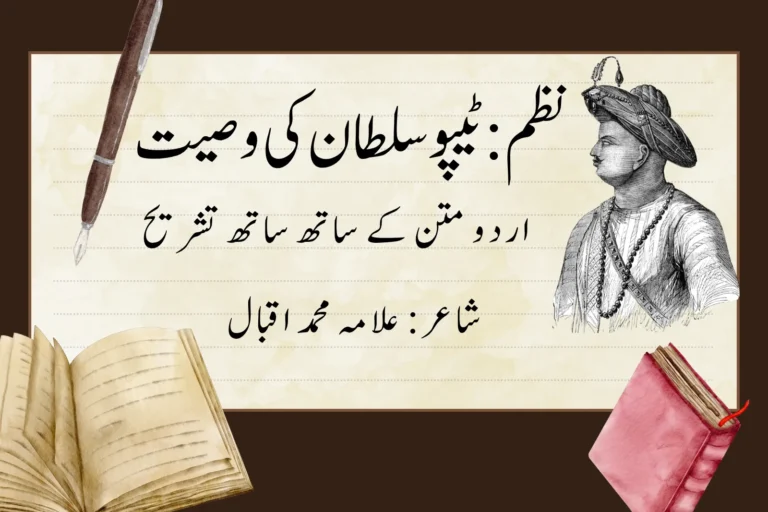 نظم: ٹیپو سلطان کی وصیت
اردو متن کے ساتھ ساتھ تشریح
شاعر: علامہ محمد اقبال